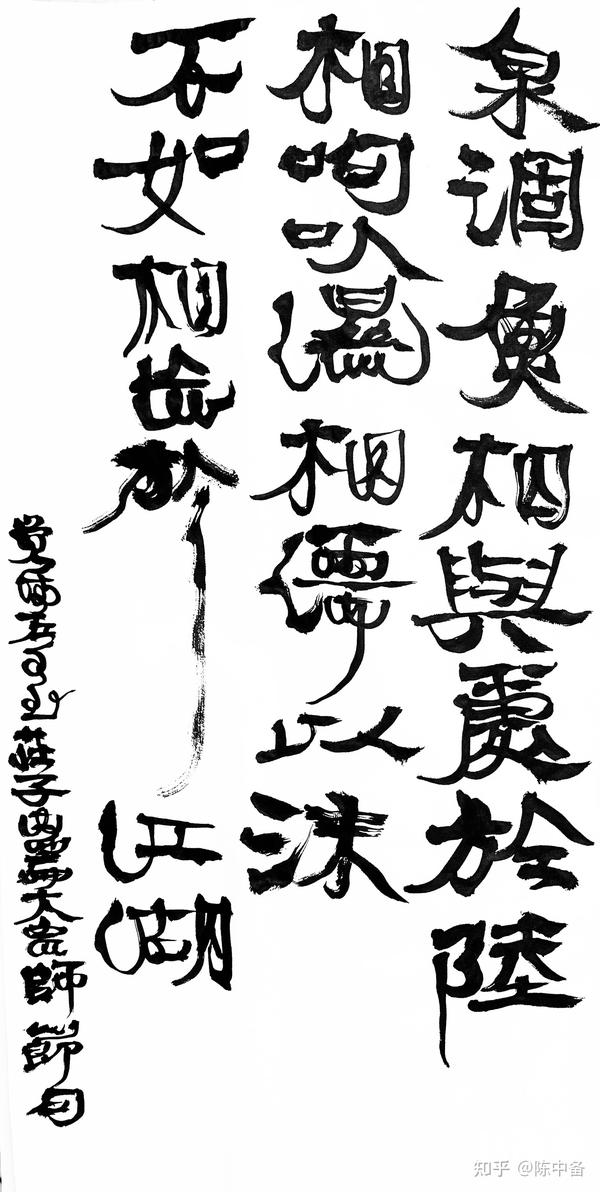 泉涸魚相與處於陸
相呴㕥濕相濡以沫
不如相忘於江湖
莊子內篇大宗師節句
知乎 @陈中备